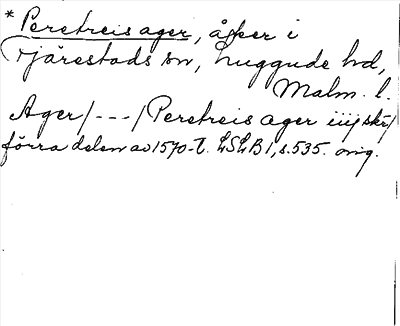 * Peretreis ager, åker i
Fjärestads sn, Luggude hd,
Malm. l.
Ager/---/Peretreis ager iiij skr/
förra delen av 1570-t. LSLB 1, s. 535. orig.